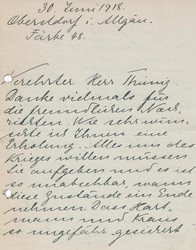 30 Juni 1918.
Oberstdorf i. Allgäu.
Färbe 48.
Verehrter Herr
Danke vielmals für
die freundlichen Nach-
richten. Wie sehr
ich Ihnen eine
Erholung. Alles um des
Krieges willen müssen
Sie aufgeben und es ist
so unabsehbar, wann
diese Zustände ein Ende
nehmen. Dass Hart-
mann und Kraus
so ungefähr gesichert